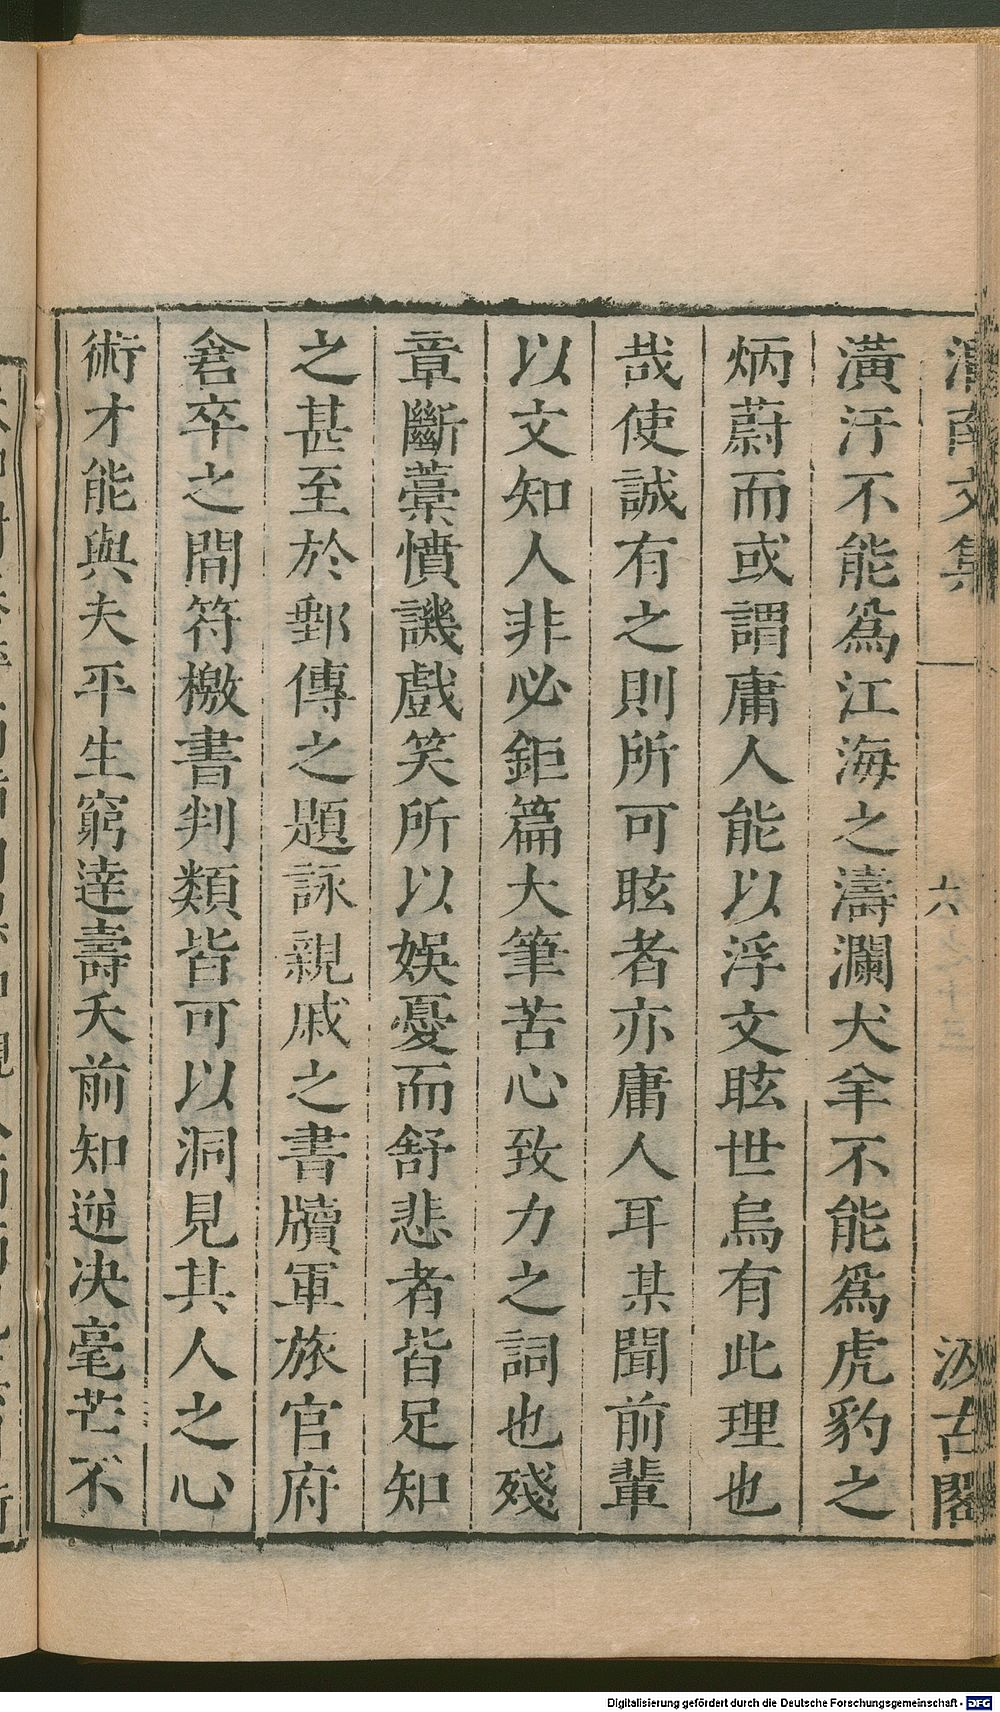 渭南文集 六 汲古閣
潢汙不能爲江海之濤瀾犬羊不能爲虎豹之
炳蔚而或謂庸人能以浮文眩世烏有此理也
哉使誠有之則所可眩者亦庸人耳某聞前輩
以文知人非必鉅篇大筆苦心致力之詞也殘
章斷藁憤譏戲笑所以娛憂而舒悲者皆足知
之甚至於郵傳之題詠親戚之書牘軍旅官府
倉卒之間符檄書判類皆可以洞見其人之心
術才能與夫平生窮達壽夭前知逆决毫芒不
Digitalisierung gefördert durch die Deutsche Forschungsgemeinschaft - DFG